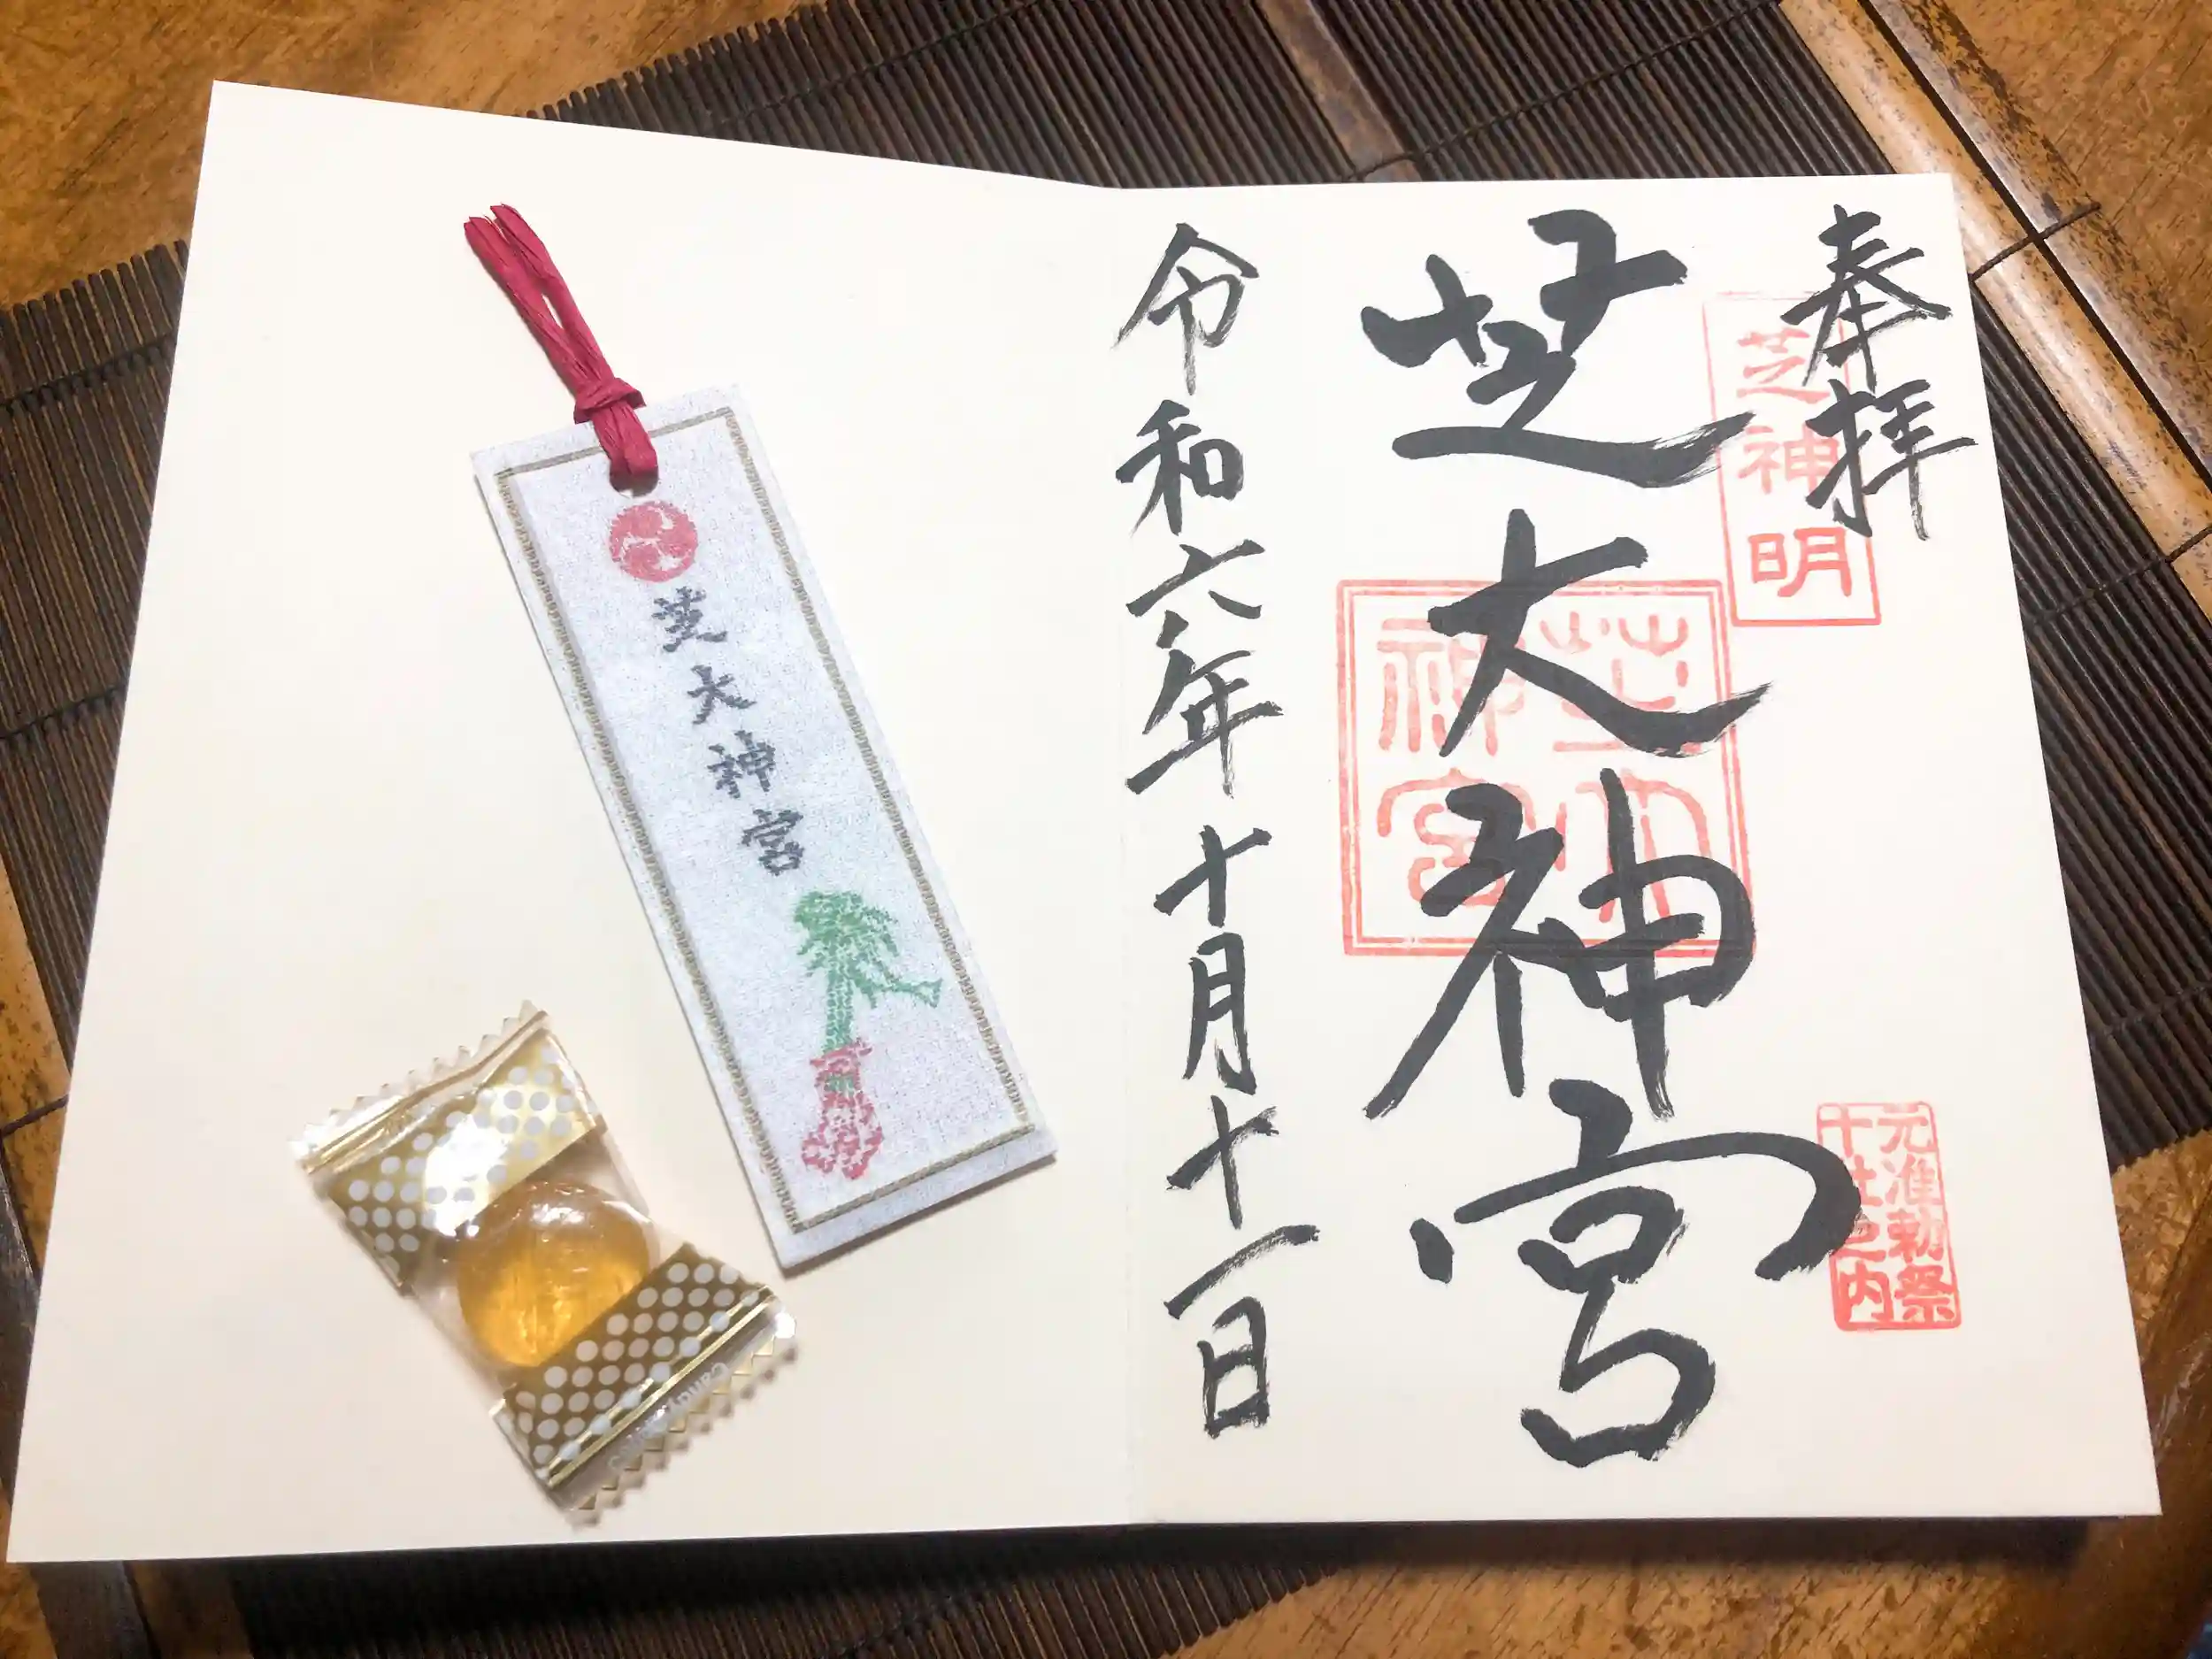 奉拝
芝神明
芝大神宮
芝大
神宮
元准勅祭
十社之内
令和六年十月十一日
芝大神宮